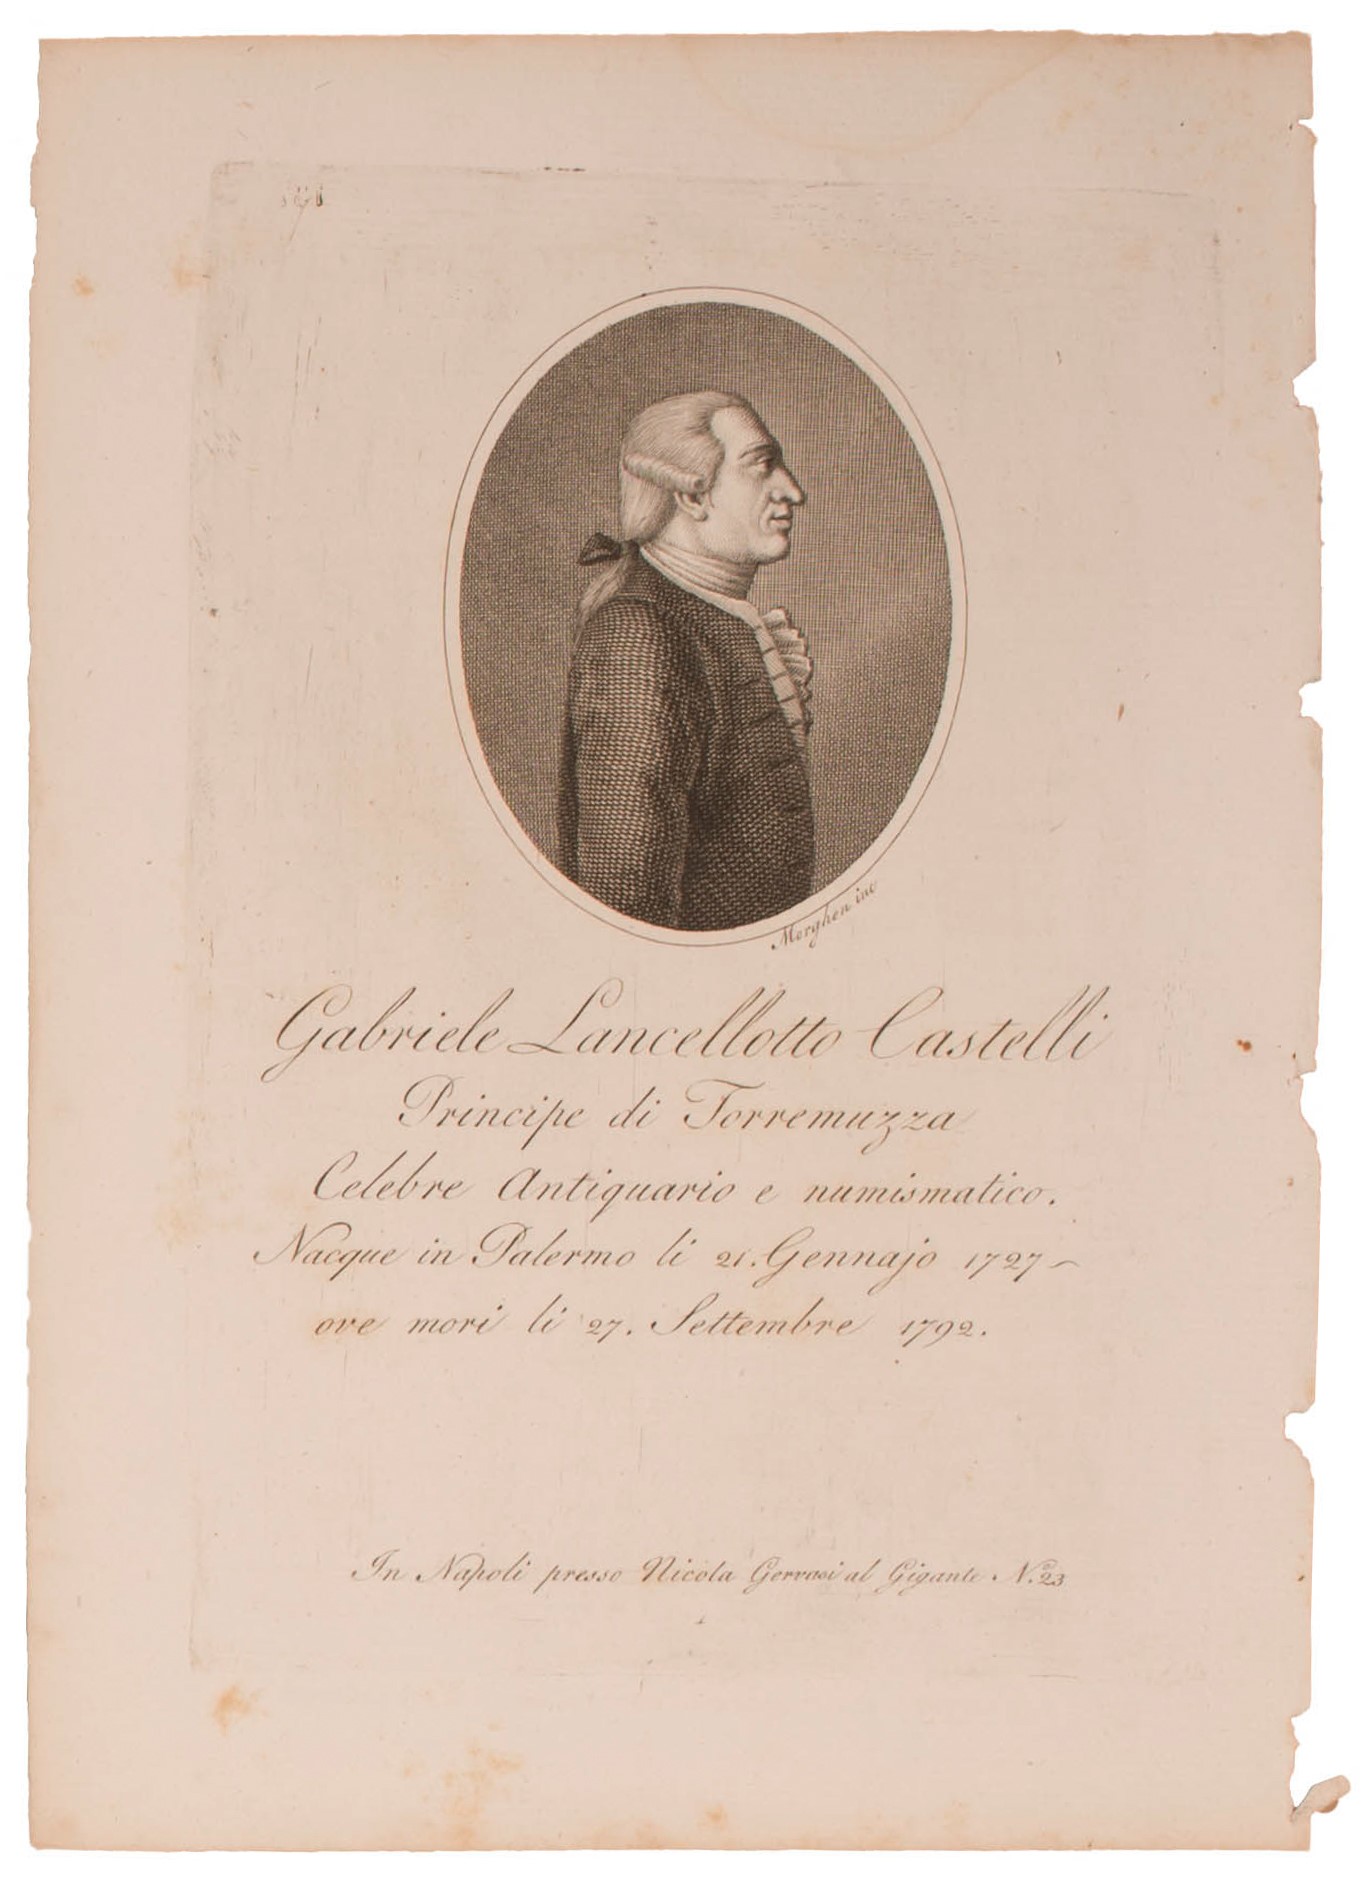 Morghen inc
Gabriele Lancellotto Castelli
Principe di Torremuzza
Celebre Antiquario e numismatico.
Nacque in Palermo li 21. Gennajo 1727 ~
ove mori li 27. Settembre 1792.
In Napoli presso Nicola Gervasi al Gigante N.º 23